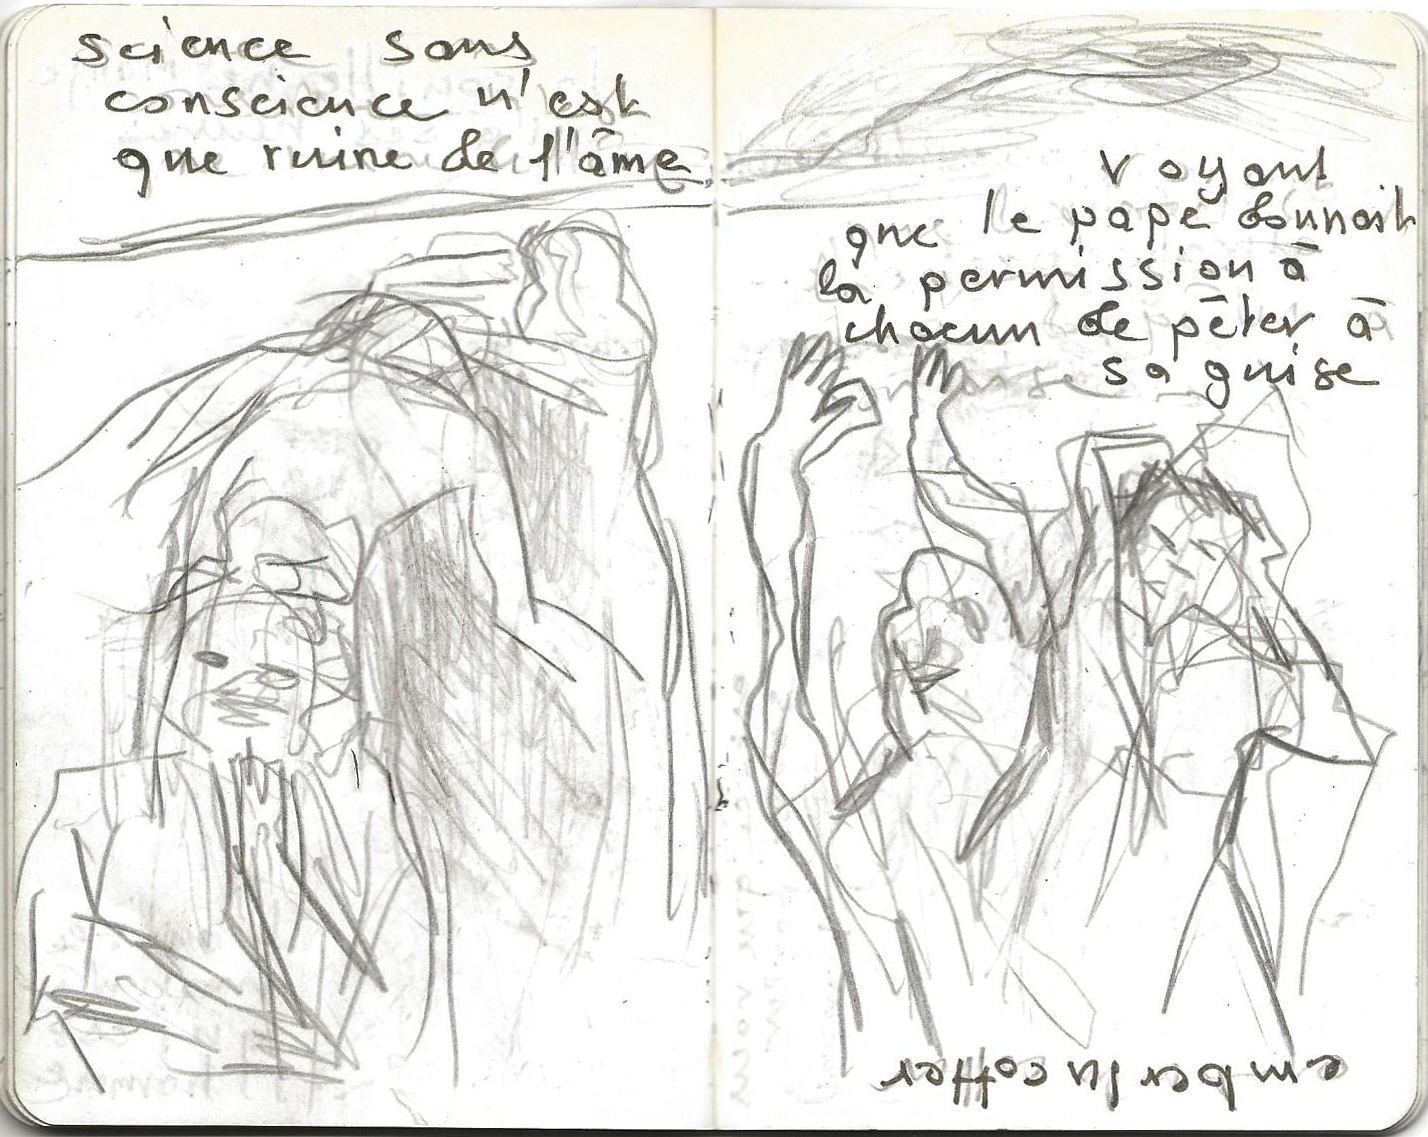 science sans
conscience n'est
que ruine de l'âme
voyant
que le pape donnait
la permission à
chacun de pêter à
sa guise